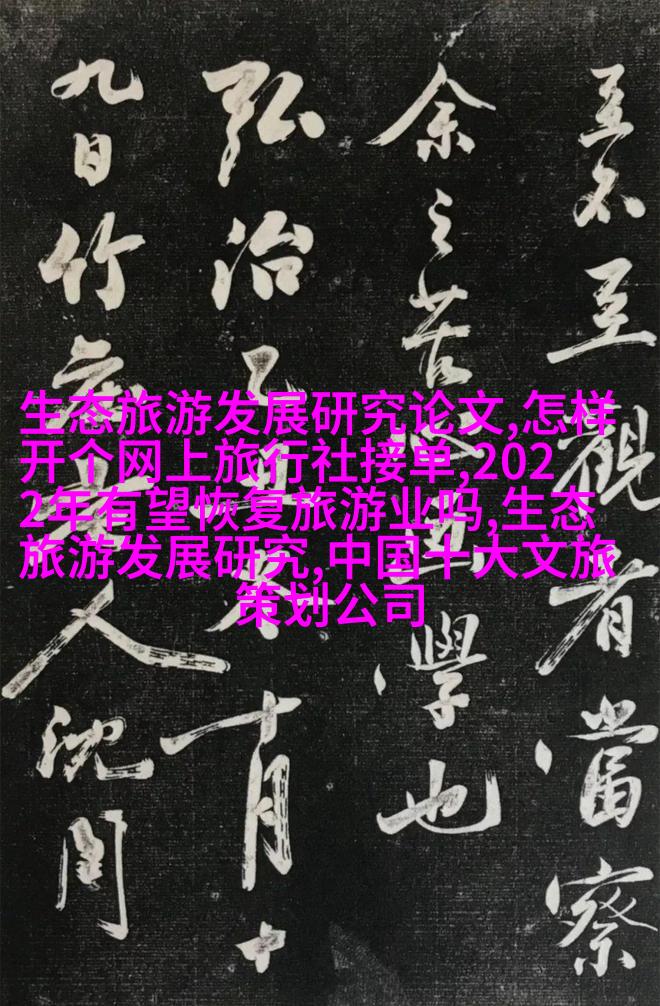 至不至觀者當察
余之苦學也
弘治十月十
九日竹人沈周
生态旅游发展研究论文,怎样
开个网上旅行社接单,202
2年有望恢复旅游业吗,生态
旅游发展研究,中国十大文旅
策划公司